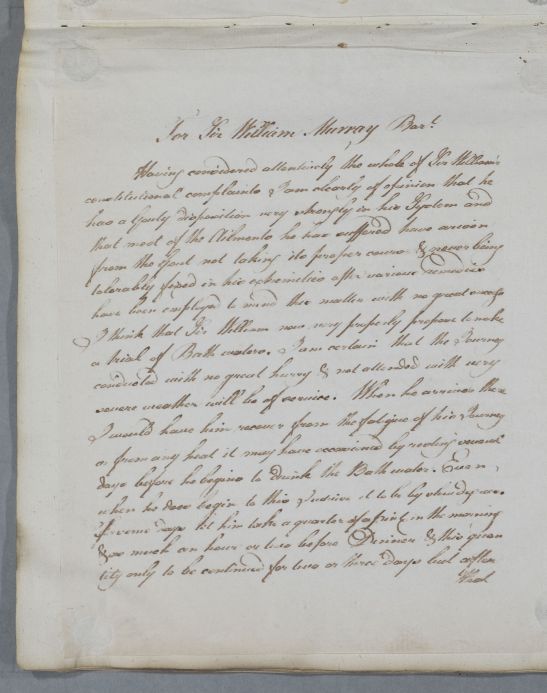 For Sir William Murray Bart.
Having considered attentively the whole of Sir William's
constitutional complaints I am clearly of opinion that he
has a Gouty disposition very strongly in his System and
that most of the Ailments he has suffered have arisen
from the Gout not taking its proper course & never being
tolerably fixed in his extremities after various Remedies
have been employed to mend this matter with no great success
I think that Sir William now very properly proposes to make
a trial of Bath waters. I am certain that the Journey
conducted with no great hurry & not attended with very
severe weather will be of service. When he arrives there
I would have him recover from the fatigue of his Journey
or from any heat it may have occasioned by resting several
days before he begins to drink the Bath water. Even
when he does begin to this I advise it to be by slow degrees.
For some days let him take a quarter of a pint in the morning
& as much an hour or two before Dinner & this quan
tity only to be continued for two or three days but after
that